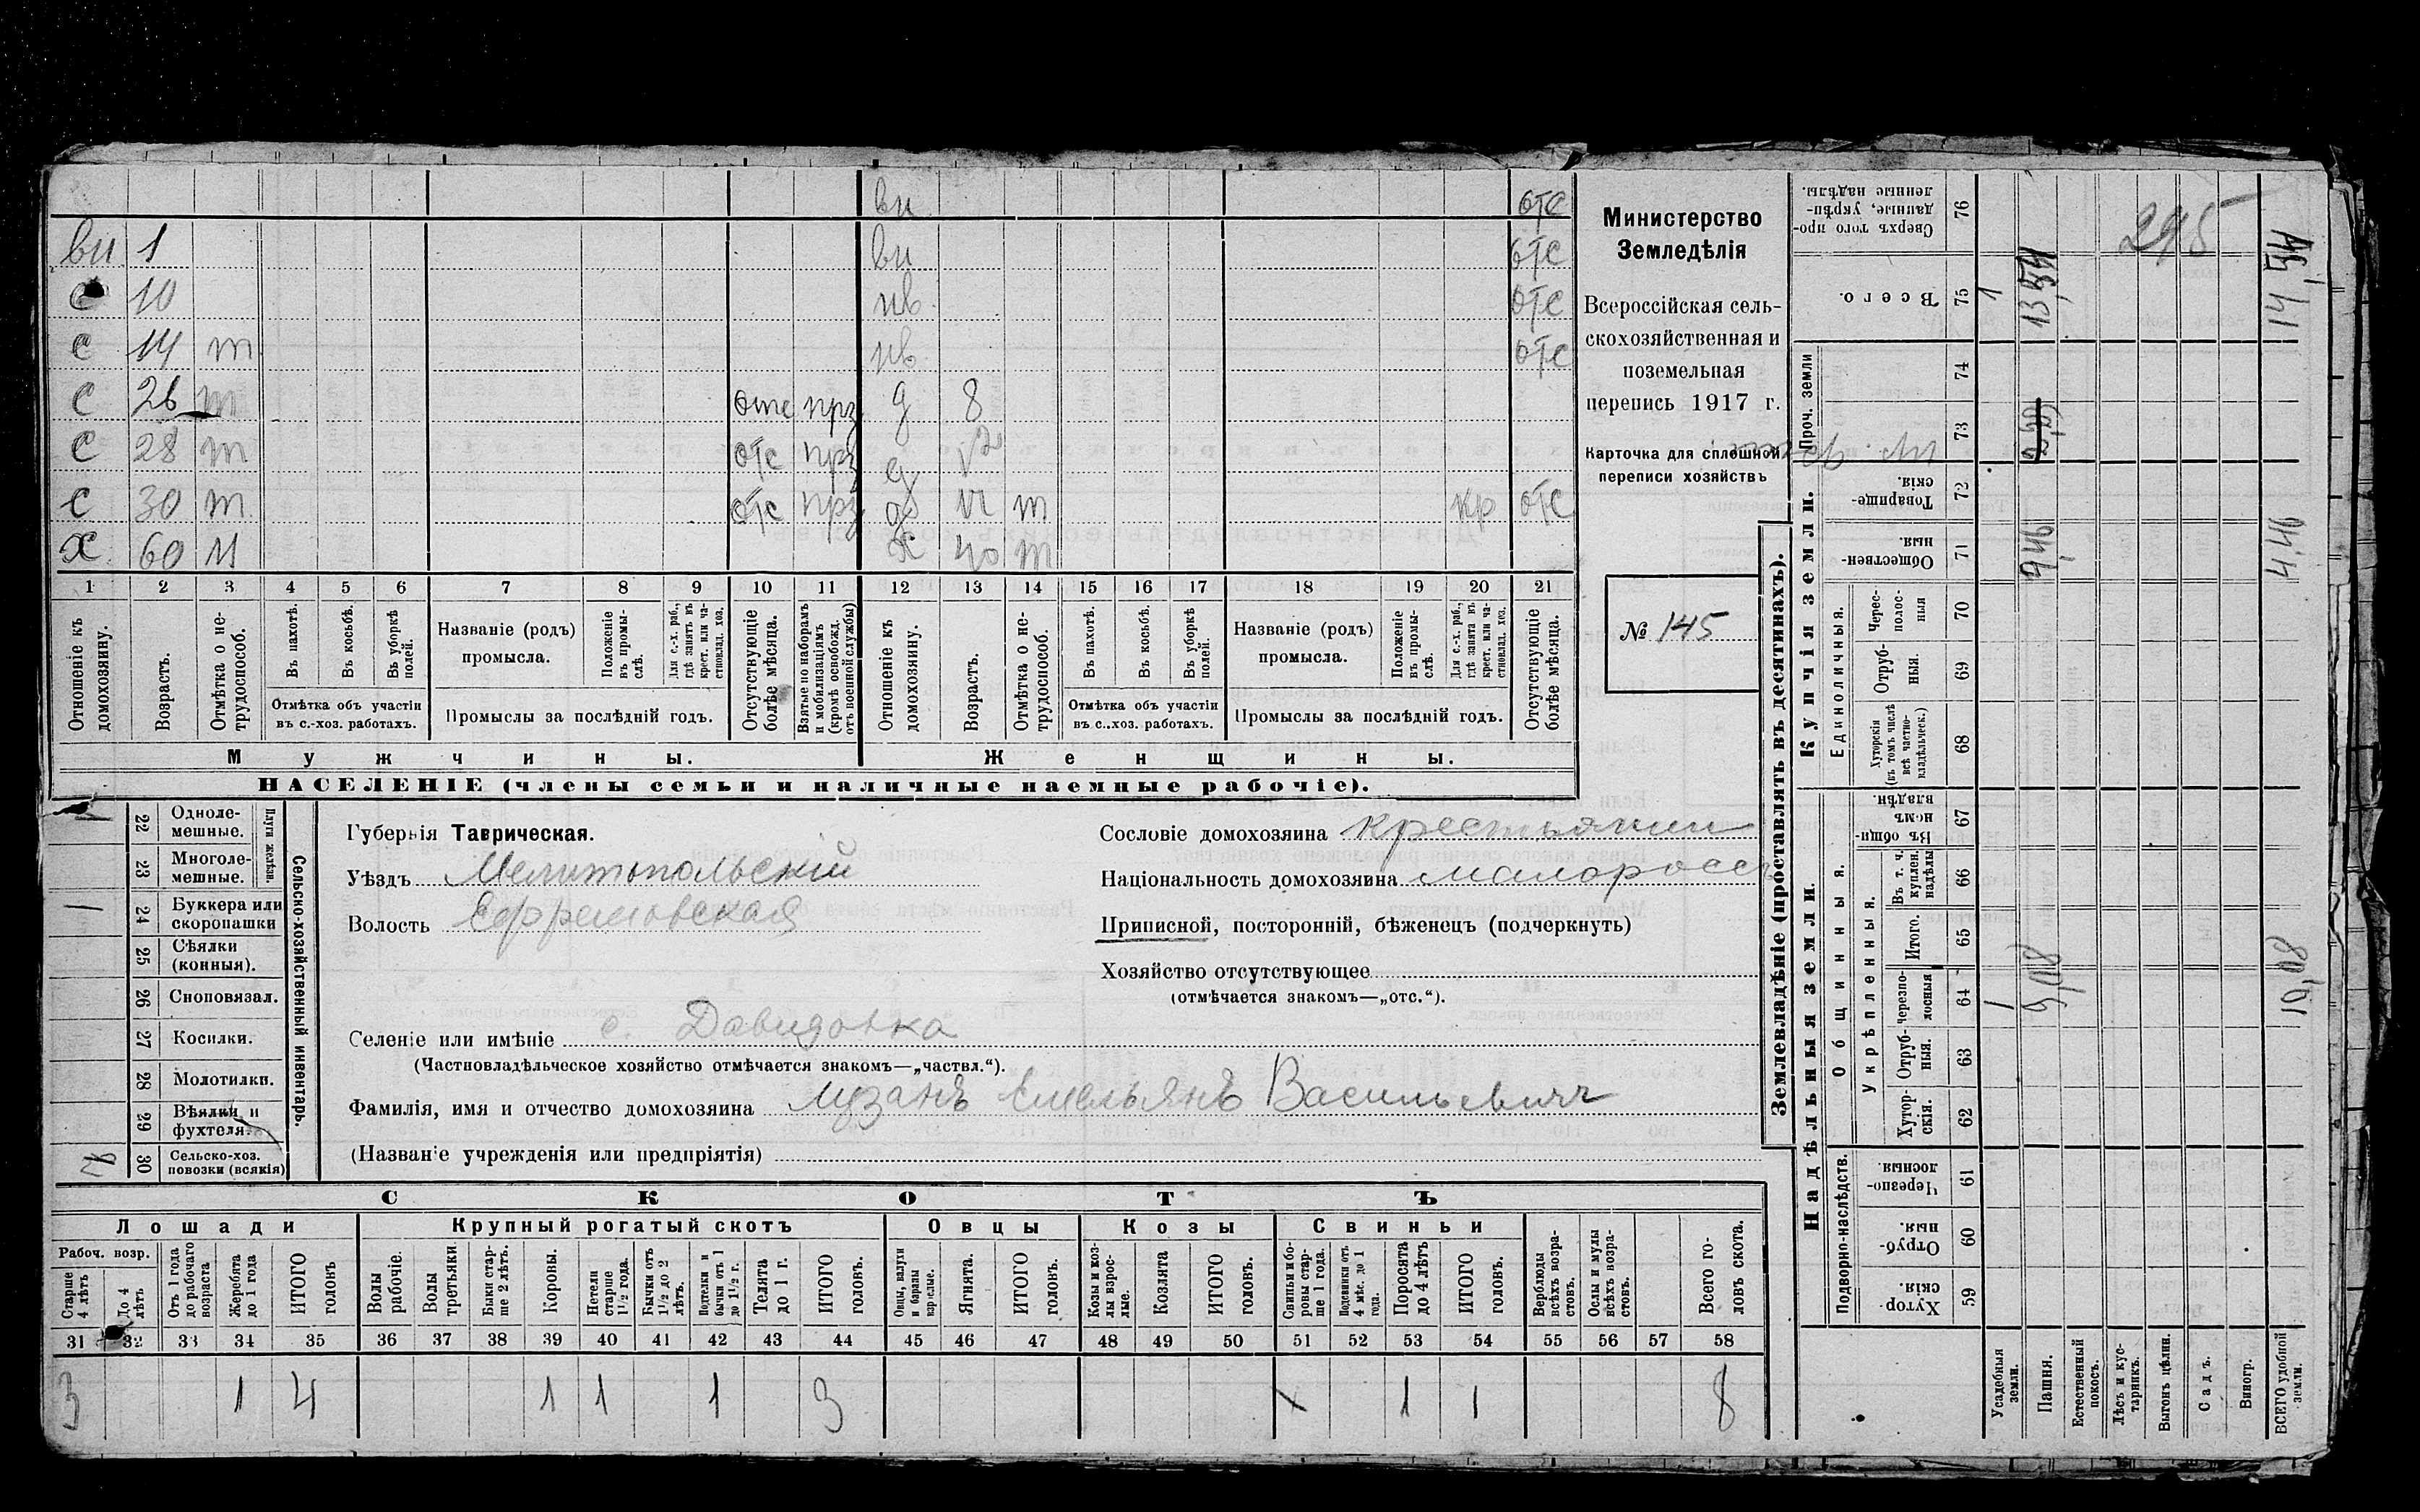 ви отс
ви 1 ви отс
с 10 нв отс
с 14 т нв отс
с 26 т отс прз д 8
с 28 т отс прз д
с 30 т отс прз т кр отс
х 60 х 40 т
1 2 3 4 5 6 7 8 9 10 11 12 13 14 15 16 17 18 19 20 21
Отношеніе къ домохозяину.
Возрастъ.
Отмѣтка о не-
трудоспособ.
Въ пахотѣ.
Въ косьбѣ.
Въ уборкѣ
полей.
Отмѣтка объ участіи
въ с.-хоз. работахъ.
Названіе (родъ)
промысла.
Положеніе
въ промы-
слѣ.
Для с.-х. раб.,
гдѣ занятъ въ
крест. или ча-
стновлад. хоз.
Промыслы за послѣдній годъ.
Отсутствующіе
болѣе мѣсяца.
Взятые по наборамъ
и мобилизаціямъ
(кромѣ освобожд.
отъ военной службы)
Отношеніе къ
домохозяину.
Возрастъ.
Отмѣтка о не-
трудоспособ.
Въ пахотѣ.
Въ косьбѣ.
Въ уборкѣ
полей.
Отмѣтка объ участіи
въ с..хоз. работахъ.
Названіе (родъ)
промысла.
Положеніе
въ промы-
слѣ.
Для с.-х. раб.,
гдѣ занята въ
крест. или ча-
стновлад. хоз.
Промыслы за послѣдній годъ.
Отсутствующіе
болѣе мѣсяца.
Мужчины. Женщины.
НАСЕЛЕНІЕ (члены семьи и наличные наемные рабочіе).
Министерство
Земледѣлія
Всероссійская сель-
скохозяйственная и
поземельная
перепись 1917 г.
Карточка для сплошной
переписи хозяйствъ
№ 145
22 Одноле-
мешные.
23 Многоле-
мешные.
Плуги желѣзн.
1 24 Буккера или
скоропашки
25 Сѣялки
(конныя).
26 Сноповязал.
27 Косилки.
28 Молотилки.
29 Вѣялки и
фухтеля.
30 Сельско-хоз.
повозки (всякія)
Сельско-хозяйственный инвентарь.
Губернія Таврическая.
Уѣздъ Мелитопольскій
Волость Ефремовская
Сословіе домохозяина крестьянин
Національность домохозяина малоросс
Приписной, посторонній, бѣженецъ (подчеркнуть)
Хозяйство отсутствующее
(отмѣчается знакомъ—„отс.“).
Селеніе или имѣніе с. Давидовка
(Частновладѣльческое хозяйство отмѣчается знакомъ—„частвл.“).
Фамилія, имя и отчество домохозяина Емельянъ Васильевич
(Названіе учрежденія или предпріятія)
СКОТЪ
Лошади Крупный рогатый скотъ Овцы Козы Свиньи
Рабоч. возр.
Старше
4 лѣтъ
До 4
лѣтъ
Отъ 1 года
до рабочаго
возраста
Жеребята
до 1 года
ИТОГО
головъ
Волы
рабочіе.
Волы
третьяки
Быки стар-
ше 2 лѣтъ.
Коровы.
Нетели
старше
1½ года.
Бычки отъ
1½ до 2
лѣтъ.
Подтелки и
бычки отъ 1
до 1½ г.
Телята
до 1 г.
ИТОГО
головъ.
Овцы, валухи
и бараны
взрослые.
Ягнята.
ИТОГО
головъ.
Козы и коз-
лы взрос-
лые.
Козлята
ИТОГО
головъ.
Свиньи и бо-
ровы стар-
ше 1 года.
Подсвинки отъ
4 мѣс. до 1
года.
Поросята
до 4 лѣтъ
ИТОГО
головъ.
Верблюды
всѣхъ возра-
стовъ.
Ослы и мулы
всѣхъ возра-
стовъ.
Всего го-
ловъ скота.
31 32 33 34 35 36 37 38 39 40 41 42 43 44 45 46 47 48 49 50 51 52 53 54 55 56 57 58
3 1 4 1 1 1 3 1 1 8
Землевладѣніе (проставлять въ десятинахъ).
Надѣльныя земли. Купчія земли. Проч. земли
Подворно-наслѣдств.
Общинныя.
Укрѣпленныя.
Единоличныя.
Хутор-
скія 59
Отруб-
ныя. 60
Черезпо-
лосныя. 61
Хутор-
скія. 62
Отруб-
ныя. 63
черезпо-
лосныя 64
Итого. 65
Въ т. ч.
куплен.
надѣлы 66
Въ общи-
номъ
владѣн. 67
Хуторскія
(въ томъ числѣ
всѣ частно-
владѣльческ.) 68
Отруб-
ныя. 69
Черес-
полос-
ныя 70
Обществен-
ныя. 71
Товарище-
скія. 72
73
74
Всего. 75
Сверхъ того про-
данные, укрѣп-
ленные надѣлы. 76
Усадебныя
земли. 1 1
Пашня. 9,08 4,46 13,54
Естественный
покосъ.
Лѣсъ и кус-
тарникъ.
Выгонъ цѣлин.
Садъ.
Виногр.
ВСЕГО удобной
земли. 10,08 4,46 14,54
295